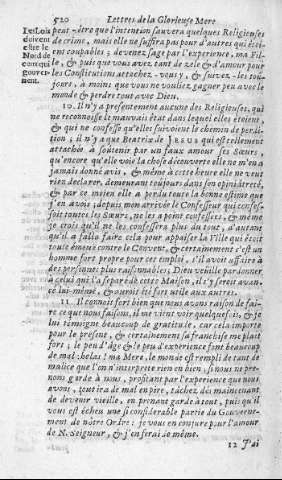 520 Lettres de la Glorieuse Mere
peut-être que l'intention sauvera quelques Religieuses
de crime, mais elle ne suffira pas pour d'autres qui étoi-
ent coupables; devenez sage par l'experience, ma Fil-
le, & puis que vous avez tant de zele & d'amour pour
les Constitutions attachez-vous y, & suivez-les toû-
jours, à moins que vous ne vouliez gagner peu avec le
monde & perdre tout avec Dieu.
Les Loix
doivent
estre le
Nord de
ceux qui
gouver-
nent.
10. Il n'y a presentement aucune des Religieuses, qui
ne reconnoisse le mauvais état dans lequel elles étoient,
& qui ne confesse qu'elles suivoient le chemin de perdi-
tion; il n'y a que Beatrix de JESUS qui est tellement
attachée à soutenir par un faux amour ses Sœurs,
qu'encore qu'elle voie la chose découverte elle ne m'en a
jamais donné avis, & même à cette heure elle ne veut
rien declarer, demeurant toujours dans son opiniâtreté,
& par ce moien elle a perdu toute la bonne estime que
j'en avois; depuis mon arrivée le Confesseur qui confes-
soit toutes les Sœurs, ne les a point confessées, & même
je crois qu'il ne les confessera plus du tout, d'autant
qu'il a fallu faire cela pour appaiser la Ville qui étoit
toute émeuë contre le Convent, & certainement c'est un
homme fort propre pour cet emploi, s'il avoit affaire à
des personnes plus raisonnables; Dieu veuille pardonner
à celui qui l'a separé de cette Maison, il s'y seroit avan-
cé lui-même, & auroit été fort utile aux autres.
11. Il connoit fort bien que nous avons raison de fai-
re ce que nous faisons, il me vient voir quelquefois, & je
lui témoigne beaucoup de gratitude, car cela importe
pour le present, & certainement sa franchise me plaît
fort; le peu d'âge & le peu d'experience font beaucoup
de mal. helas! ma Mere, le monde est rempli de tant de
malice que l'on n'interprete rien en bien; si nous ne pre-
nons garde à nous, profitant par l'experience que nous
avons, tout ira de mal en pire, tâchez dés maintenant
de devenir vieille, en prenant garde à tout, puis qu'il
vous est écheu une si considerable partie du Gouverne-
ment de nôtre Ordre; je vous en conjure pour l'amour
de N. Seigneur, & j'en ferai de même.
12 J'ai